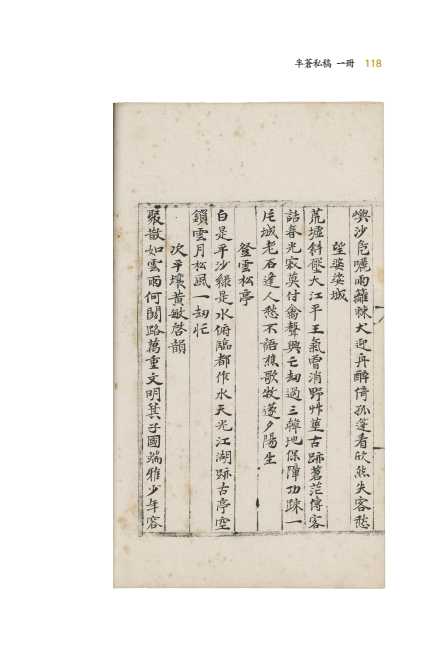 半蒼私稿 一冊 118
嶼沙危囇雨籬棘犬迎舟醉倚孤篷看欣然失客愁
望婆娑城
荒墟斜壓大江平王氣曾消野艸生古跡蒼茫傳客
詁春光寂莫付禽聲興亡劫過三韓地保障功疎一
片城老石逢人愁不語樵歌牧篴夕陽生
登雲松亭
白是平沙綠是水俯臨都作水天光江湖跡古亭空
鎖雲月松風一劫忙
次平壤黃敏啓韻
聚散如雲雨何關路萬重文明箕子國端雅少年容